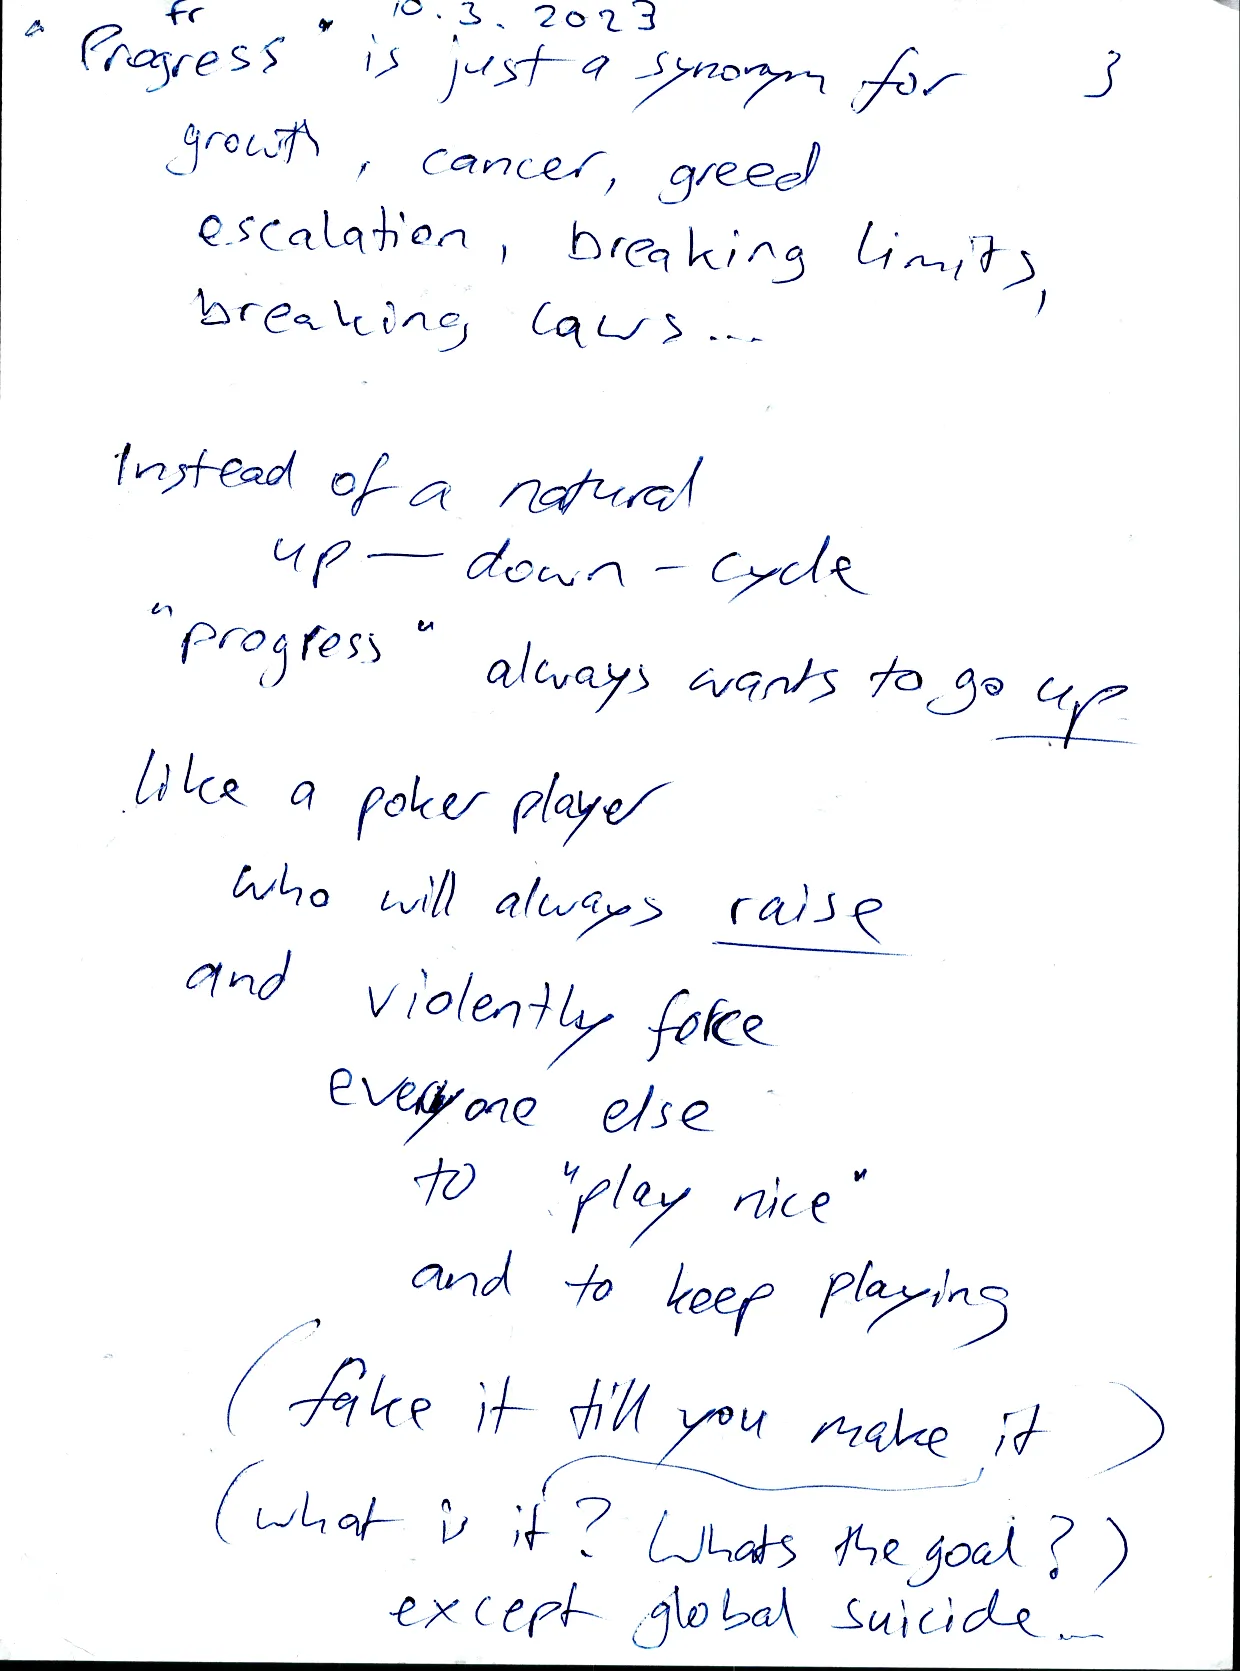 fr 10.3.2023
"Progress" is just a synonym for 3
growth, cancer, greed
escalation, breaking limits,
breaking laws...
Instead of a natural
up — down - cycle
"progress" always wants to go up
like a poker player
who will always raise
and violently force
everyone else
to "play nice"
and to keep playing
(fake it till you make it)
(what is it? Whats the goal?)
except global suicide...